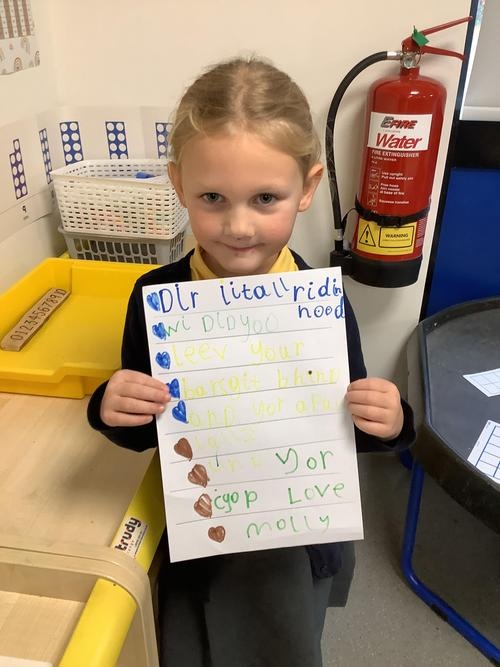 Dir litall riding
hood
wi DiDyoo
leev your
basgit bhind
and yor
yor
cyop Love
molly
EFIRE
Water
FIRE EXTINGUISHER
WARNING
0123456789
trudy